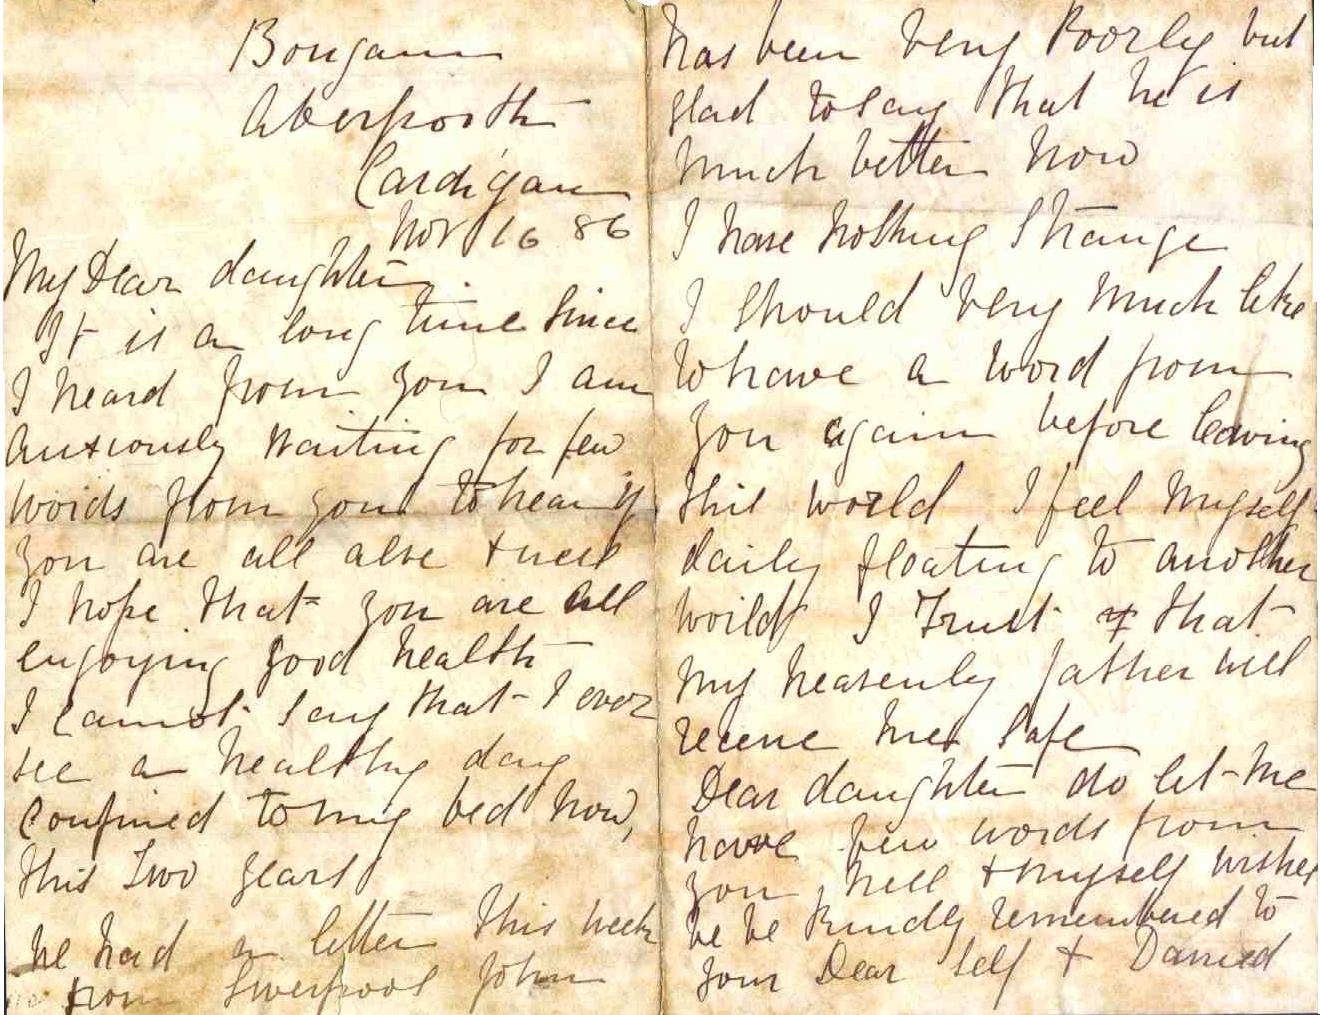 Bongam
Aberporth
Cardigan
Nov 16 86
My Dear daughter
It is a long time since
I heard from you I am
anxiously waiting for few
words from you to hear if
you are all alve + well
I hope that you are all
enjoying good health
I cannot say that I ever
see a healthy day
Confined to my bed now,
this Two years
we had a letter this week
from Liverpool John
has been very Poorly but
glad to say that he is
much better now
I have nothing Strange
I should very much like
to have a word from
you again before leaving
this world I feel myself
daily floating to another
world I Trust that
my heavenly father will
receive me safe
Dear daughter do let me
have few words from
you, Nell + myself wishes
be be kindly remembered to
your Dear self + Daniel